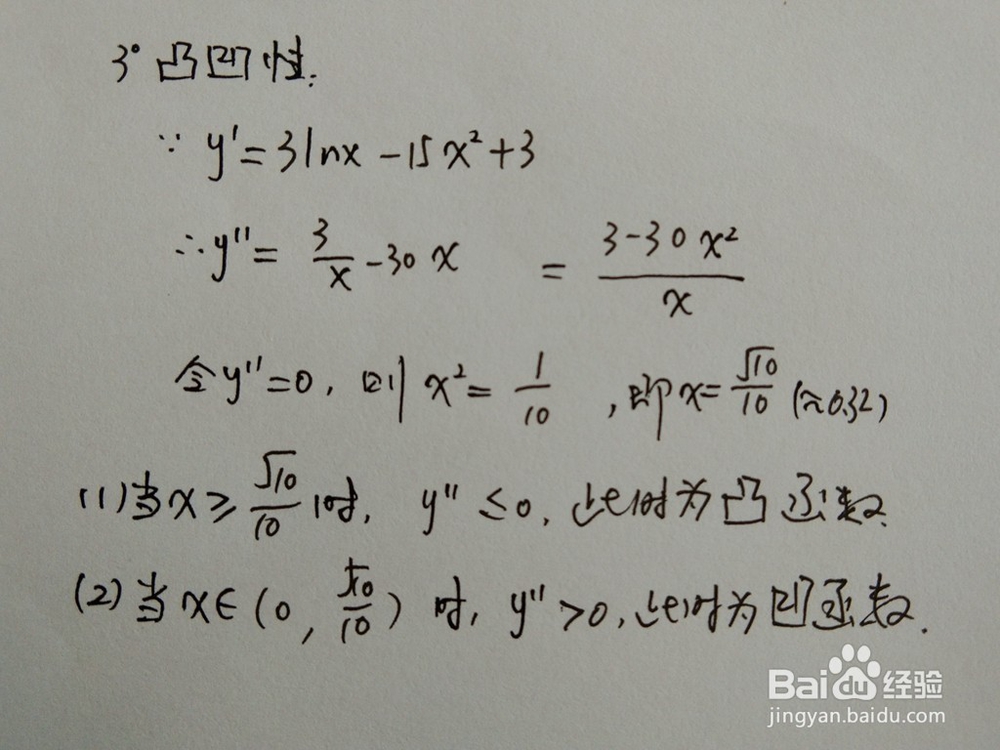 3° 凸凹性:
∵ y' = 3lnx - 15x² + 3
∴ y'' = 3/x - 30x = (3-30x²)/x
令y''=0, 则 x² = 1/10, 即x = √10/10 (≈0.32)
(1)当x ≥ √10/10 时, y'' ≤ 0, 此时为凸函数.
(2)当x∈(0, √10/10) 时, y'' > 0, 此时为凹函数.
Baidu 经验
jingyan.baidu.com